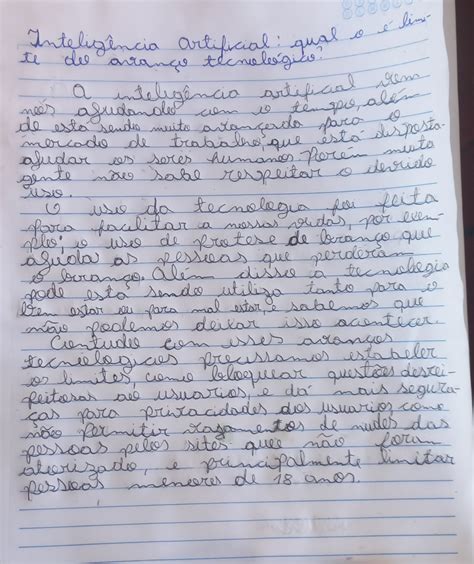 Inteligência artificial: qual o é limi-
te do avanço tecnológico?
A inteligência artificial vem
nos ajudando com o tempo, além
de está sendo muito avançada para o
mercado de trabalho, que está disposta
ajudar os seres humanos. Porém muita
gente não sabe respeitar o devido
uso.
O uso da tecnologia foi feita
para facilitar a nossas vidas, por exem-
plo: o uso de protese de branço que
ajuda as pessoas que perderam
o branço. Além disso a tecnologia
pode está sendo utiliza tanto para o
bem estar ou para mal estar, e sabemos que
não podemos deixar isso acontecer.
Contudo com esses avanços
tecniologicos precissamos estabeler
os limites, como bloquear questões desrei-
peitosas ao usuarios, e dá mais segura-
ças para privacidades dos usuarios, como
não permitir vazamentos de nudes das
pessoas pelos sites quee não foram
aturizado, e principalmente limitar
pessoas menores de 18 anos.